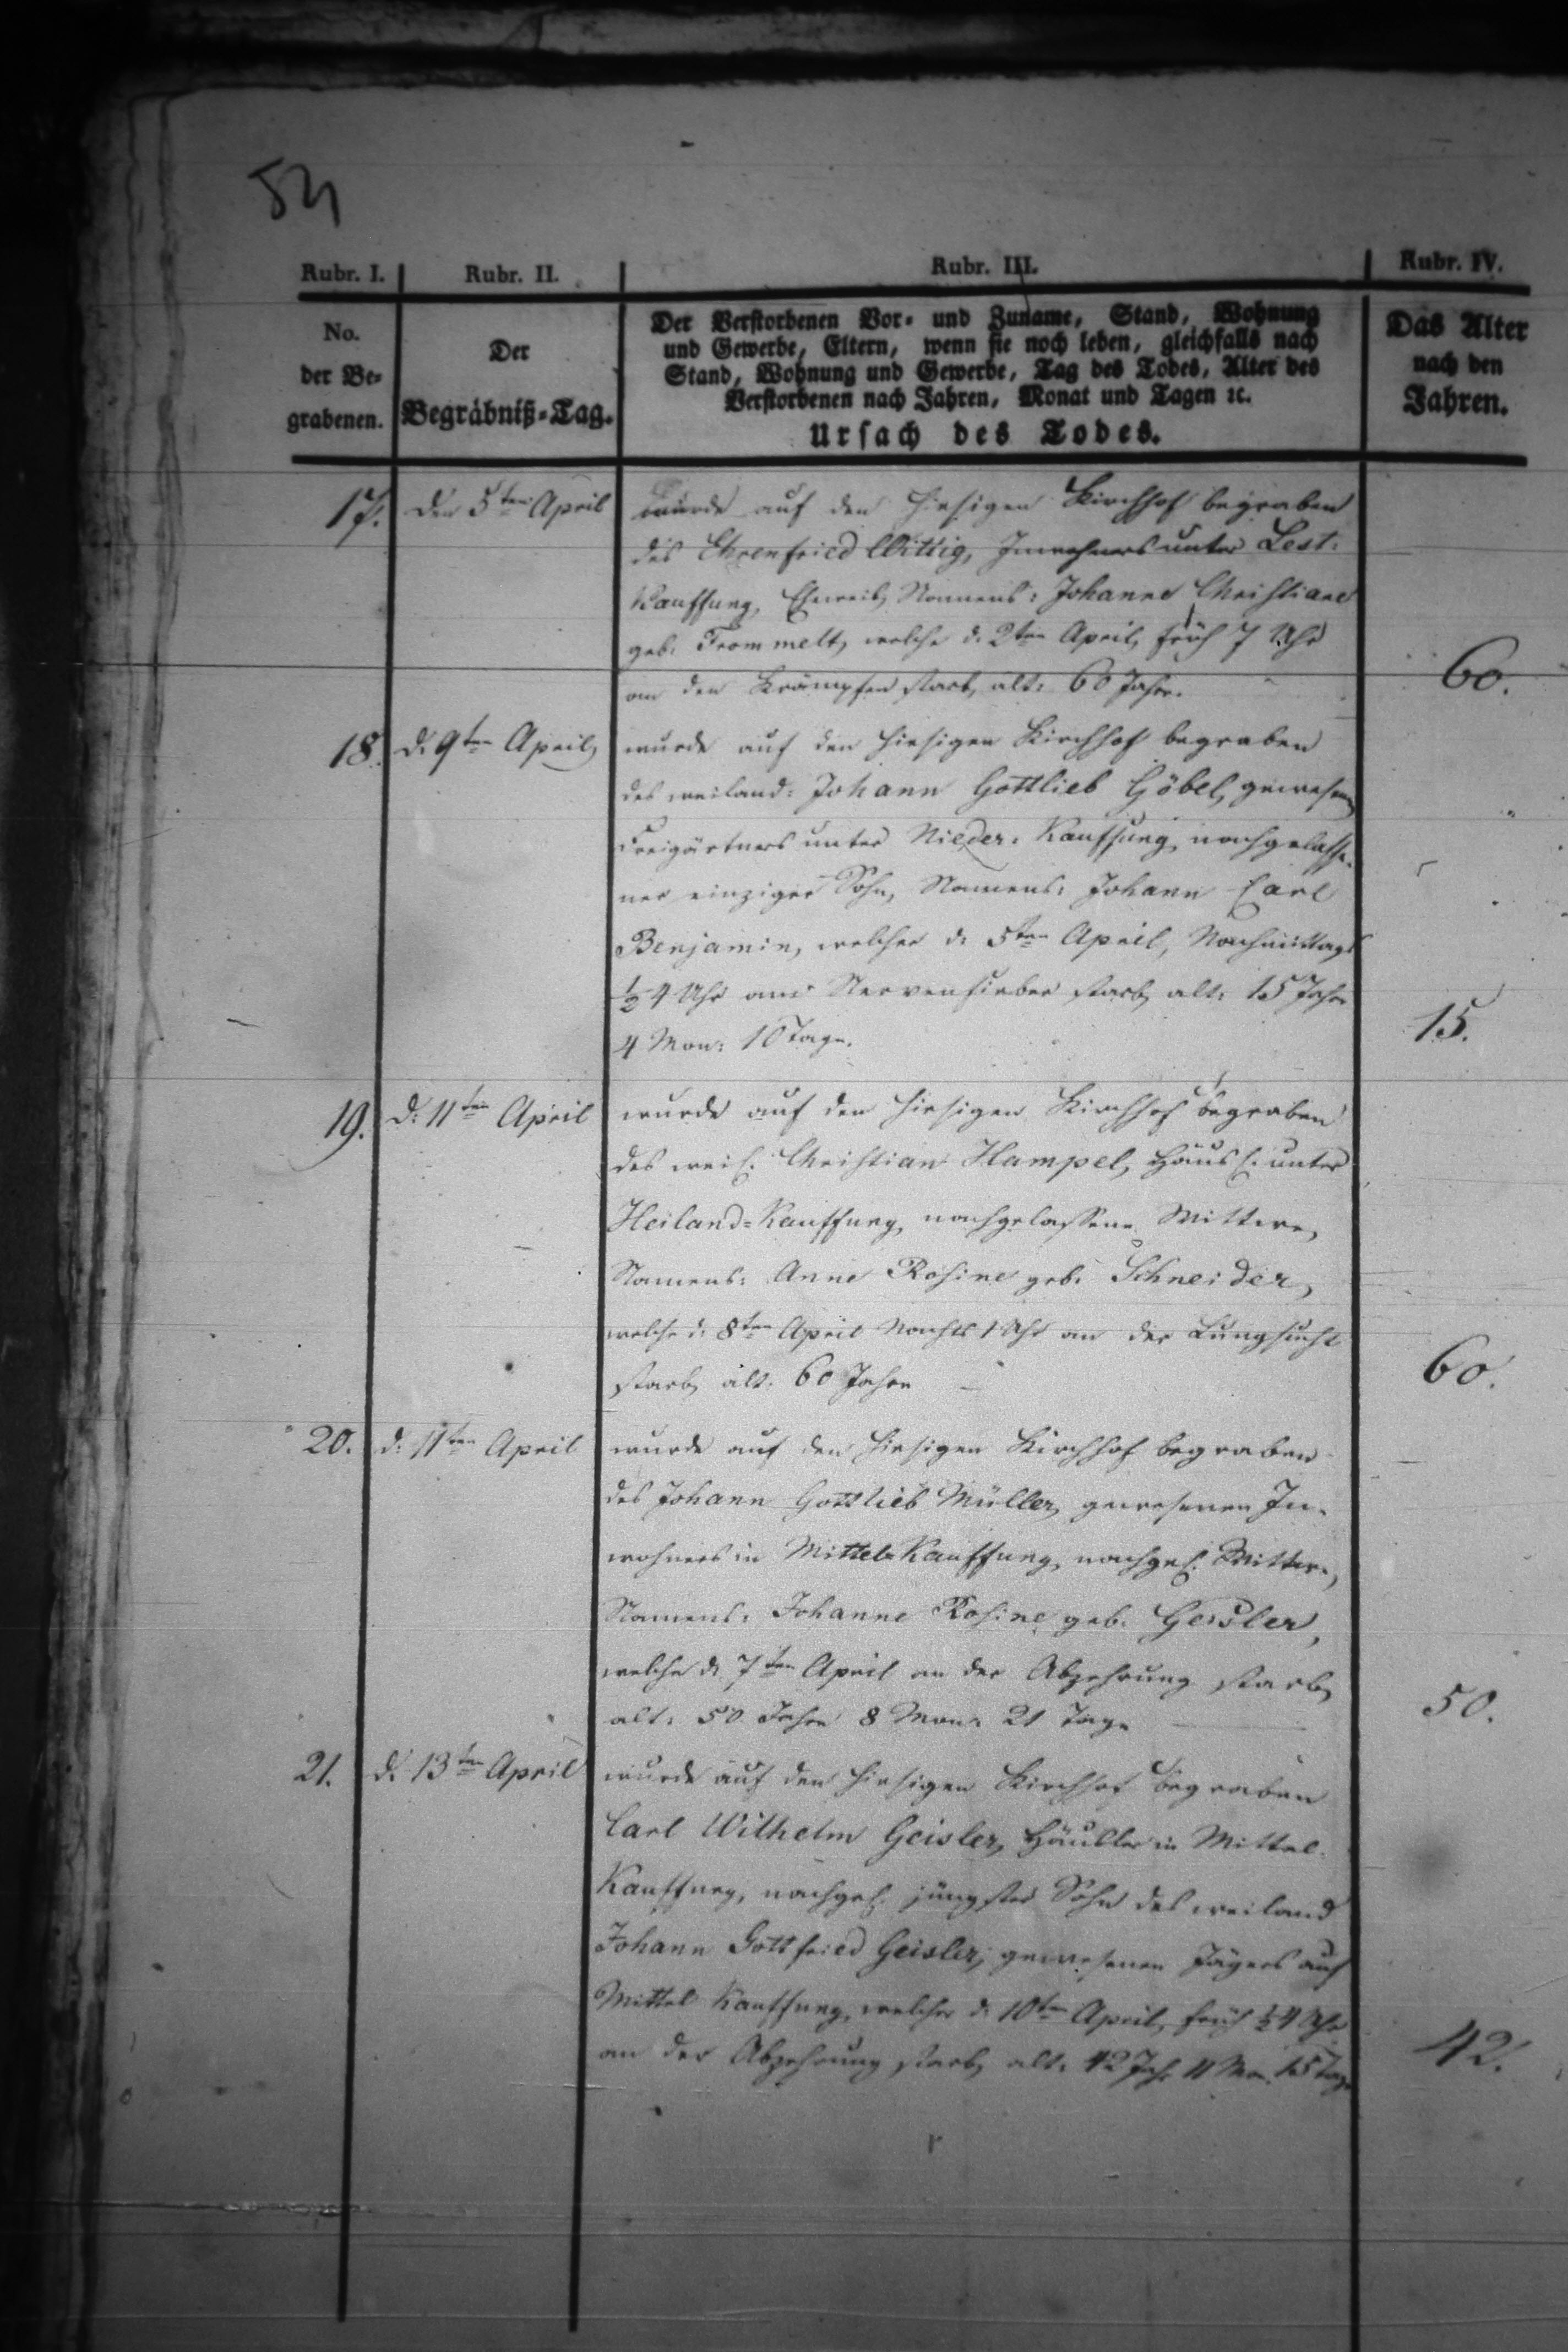 54
Rubr. I. Rubr. II. Rubr. III. Rubr. IV.
No.
der Be-
grabenen.
Der
Begräbniß-Tag.
Der Verstorbenen Vor- und Zuname, Stand, Wohnung
und Gewerbe, Eltern, wenn sie noch leben, gleichfalls nach
Stand, Wohnung und Gewerbe, Tag des Todes, Alter des
Verstorbenen nach Jahren, Monat und Tagen ꝛc.
Ursach des Todes.
Das Alter
nach den
Jahren.
17. Den 5ten April wurde auf den hiesigen Kirchhof begraben
des Ehrenfried Wittig, Inwohners unter Lest-
Kauffung, Eheweib, Namens: Johanne Christiane
geb. Frommelt, welche d. 2ten April, früh 7 Uhr
an den Krämpfen starb, alt: 60 Jahr. 60.
18. d. 9ten April, wurde auf den hiesigen Kirchhof begraben
des weiland: Johann Gottlieb Göbel, gewesenen
Freigärtners unter Nieder-Kauffung, nachgelasse-
ner einziger Sohn, Namens: Johann Carl
Benjamin, welcher d. 5ten April, Nachmittags
½ 4 Uhr am Nervenfieber starb, alt: 15 Jahr
4 Mon: 10 Tage. 15.
19. d. 11ten April wurde auf den hiesigen Kirchhof begraben
des weil. Christian Hampel, Häusl. unter
Heiland-Kauffung, nachgelassene Wittwe,
Namens: Anne Rosine geb. Schneider,
welche d. 8ten April Nachts 1 Uhr an der Lungsucht
starb, alt: 60 Jahre 60.
20. d. 11ten April wurde auf den hiesigen Kirchhof begraben
des Johann Gottlieb Müller, gewesenen In-
wohners in Mittel-Kauffung, nachgel. Wittwe,
Namens: Johanne Rosine geb. Geisler,
welche d. 7ten April an der Abzehrung starb,
alt: 50 Jahre 8 Mon: 21 Tage 50.
21. d. 13ten April wurde auf den hiesigen Kirchhof begraben
Carl Wilhelm Geisler, Häusler in Mittel-
Kauffung, nachgel. jüngster Sohn des weiland
Johann Gottfried Geisler, gewesenen Jägers auf
Mittel Kauffung, welcher d. 10ten April, früh ½ 4 Uhr
an der Abzehrung starb, alt: 42 Jahr 11 Mon. 15 Tage 42.